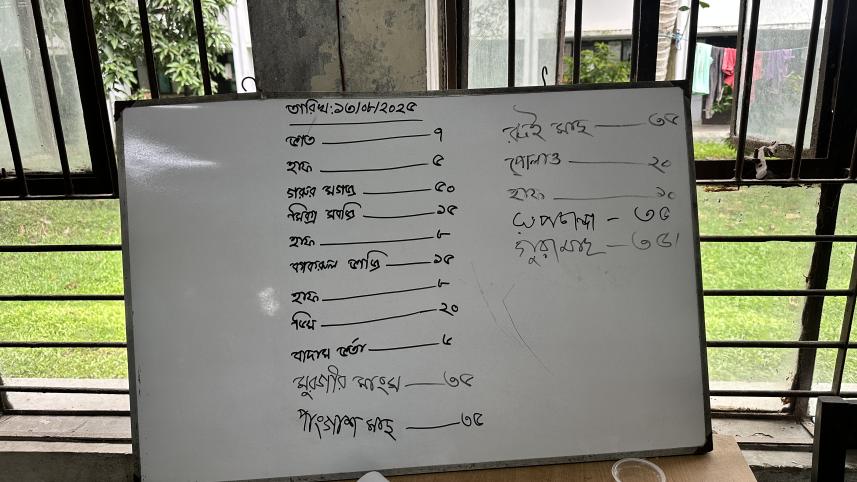 তারিখ:১৩/০৮/২০২৫
ভাত ৭
হাফ ৫
গরুর মগজ ৫০
মিক্স সবজি ১৫
হাফ ৮
ভাজি ১৫
হাফ ৮
ডিম ২০
বাদাম ভর্তা ৬
মুরগীর মাংস ৩৫
পাংগাশ মাছ ৩৫
রুই মাছ ৩৫
পোলাও ২০
হাফ ১০
রূপচাঁন্দা - ৩৫
গুরা মাছ - ৩৫